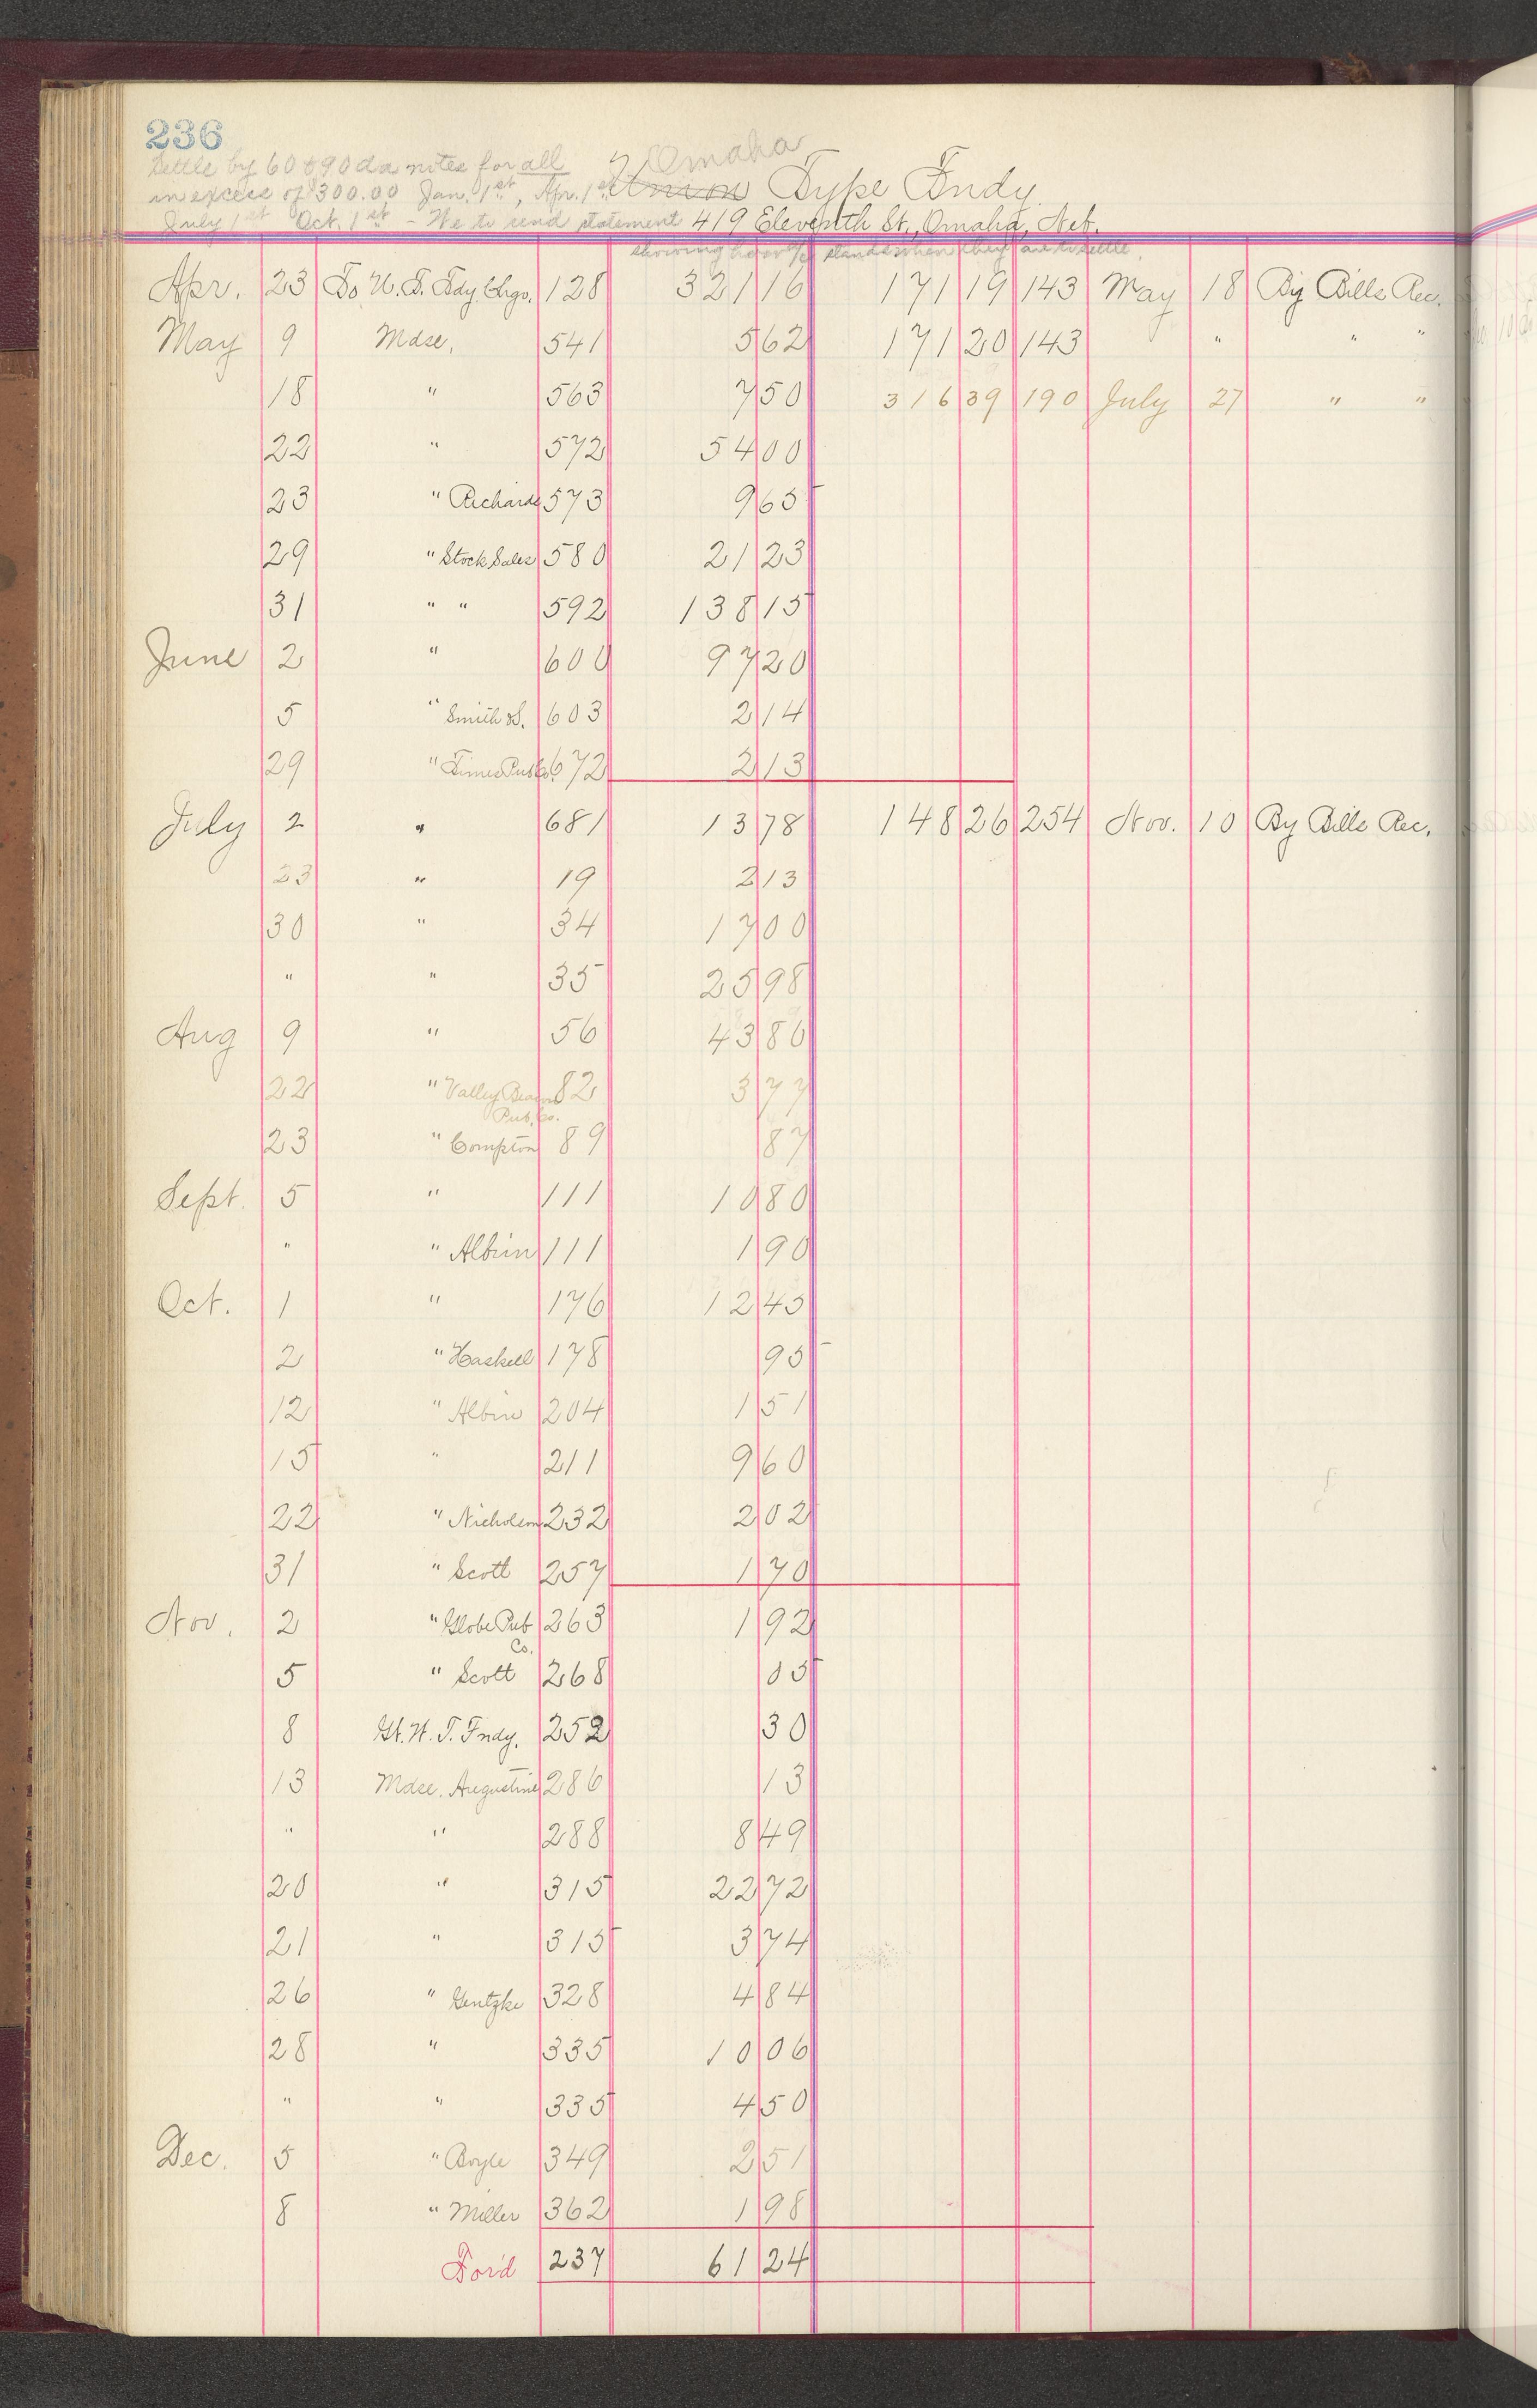 236
Settle by 60 & 90 da notes for all
in excess of $300.00 Jan. 1st, Apr. 1st
July 1st Oct. 1st - We to send statement
showing how a/c stands when they are to settle.
Omaha
Union Type Fndy.
419 Eleventh St., Omaha, Neb.
Apr. 23 To U. T. Fdy Chgo. 128 321 16 171 19 143 May 18 By Bills Rec.
May 9 Mdse. 541 5 62 171 20 143 " " "
18 " 563 7 50 316 39 190 July 27 " "
22 " 572 54 00
23 " Richards 573 9 65
29 " Stock Sales 580 21 23
31 " " 592 138 15
June 2 " 600 97 20
5 " Smith & S. 603 2 14
29 " Times Pub Co. 672 2 13
July 2 " 681 13 78 148 26 254 Nov. 10 By Bills Rec.
23 " 19 2 13
30 " 34 17 00
" " 35 25 98
Aug 9 " 56 43 86
22 " Valley Beacon 82 3 77
Pub. Co.
23 " Compton 89 87
Sept. 5 " 111 10 80
" " Albin 111 1 90
Oct. 1 " 176 12 45
2 " Haskell 178 95
12 " Albin 204 1 51
15 " 211 9 60
22 " Nicholson 232 2 02
31 " Scott 257 1 70
Nov. 2 " Globe Pub 263 1 92
Co.
5 " Scott 268 05
8 Gt. W. T. Fndy. 252 30
13 Mdse. Augustine 286 13
" " 288 8 49
20 " 315 22 72
21 " 315 3 74
26 " Gentzke 328 4 84
28 " 335 10 06
" " 335 4 50
Dec. 5 " Boyle 349 2 51
8 " Miller 362 1 98
For'd 237 61 24